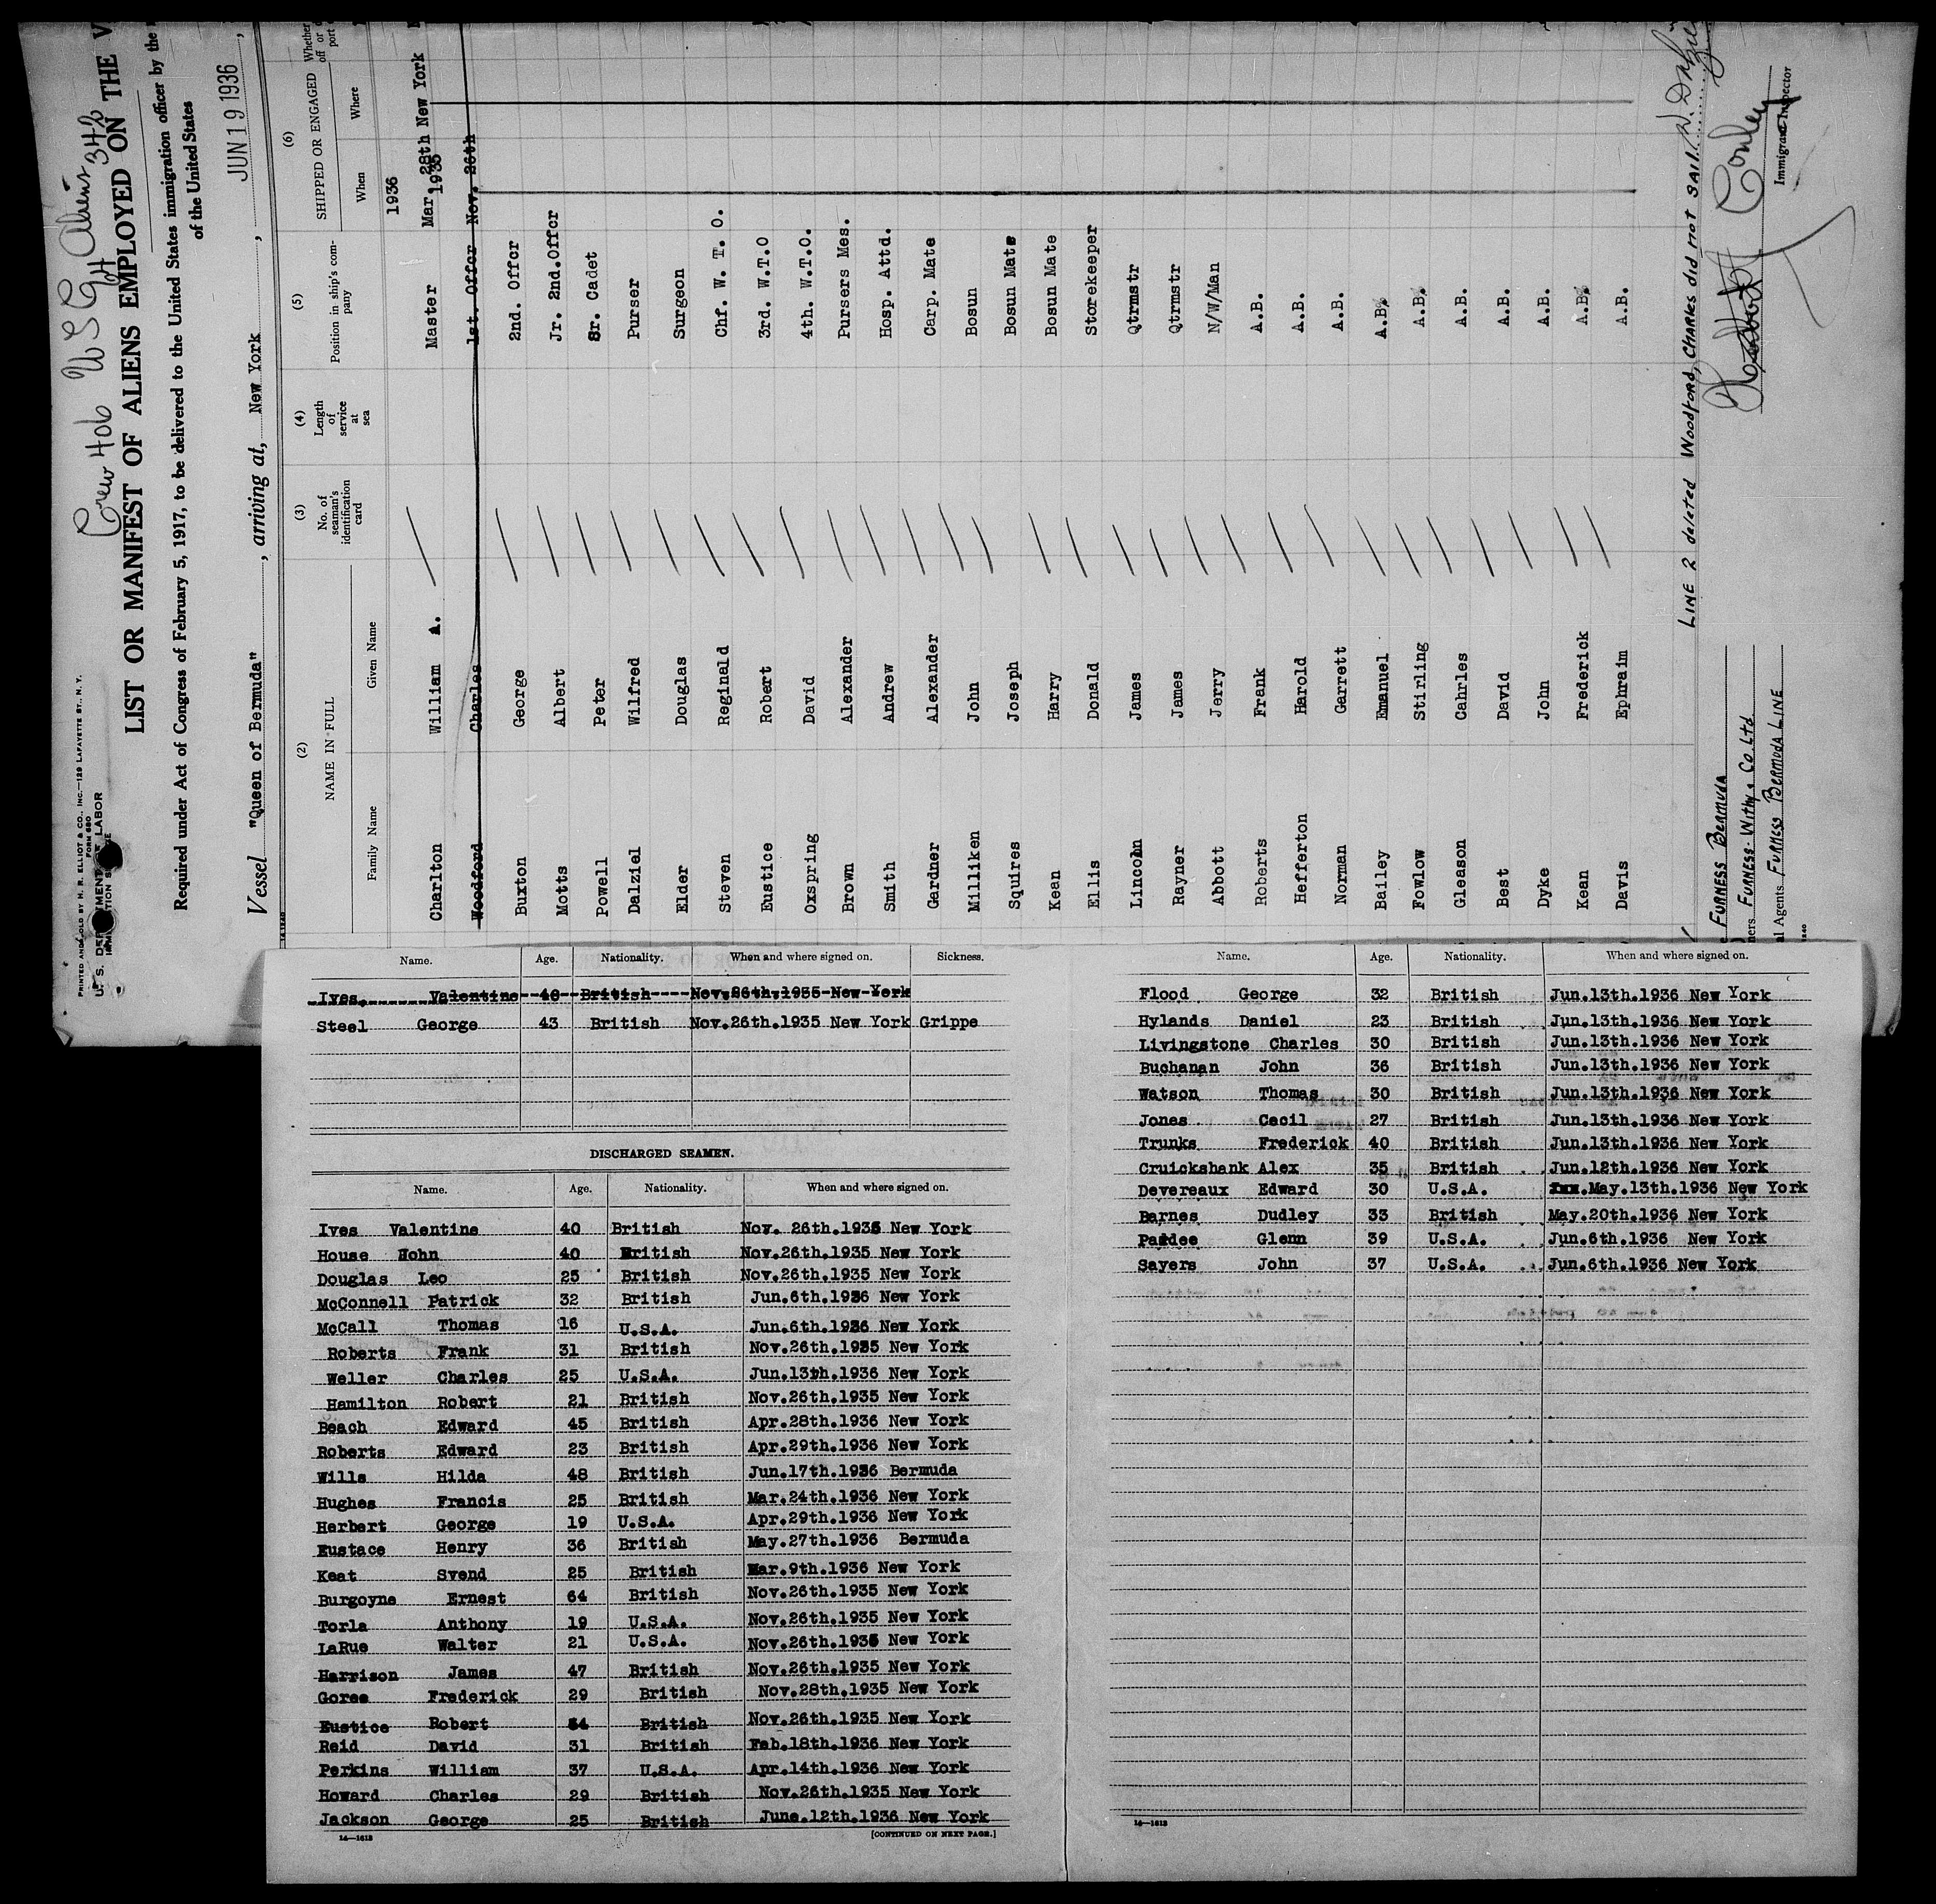 Crew 406 USC 64 Aliens 342
PRINTED AND SOLD BY H. R. ELLIOT & CO., INC.—129 LAFAYETTE ST., N.Y.
FORM 680
U. S. DEPARTMENT LABOR
LIST OR MANIFEST OF ALIENS EMPLOYED ON THE V
Required under Act of Congress of February 5, 1917, to be delivered to the United States immigration officer by the
of the United States
Vessel "Queen of Bermuda", arriving at, New York, JUN 19 1936,
(2) (3) (4) (5) (6)
NAME IN FULL No. of seaman's identification card Length of service at sea Position in ship's company SHIPPED OR ENGAGED Whether
Family Name Given Name When Where
1936
Charlton William A. Master Mar 28th New York
1935
Woodford Charles 1st. Offcr Nov. 26th
Buxton George 2nd. Offcr
Motts Albert Jr. 2nd.Offcr
Powell Peter Sr. Cadet
Dalziel Wilfred Purser
Elder Douglas Surgeon
Steven Reginald Chf. W. T. O.
Eustice Robert 3rd. W.T.O
Oxspring David 4th. W.T.O.
Brown Alexander Pursers Mes.
Smith Andrew Hosp. Attd.
Gardner Alexander Carp. Mate
Milliken John Bosun
Squires Joseph Bosun Mate
Kean Harry Bosun Mate
Ellis Donald Storekeeper
Lincoln James Qtrmstr
Rayner James Qtrmstr
Abbott Jerry N/W/Man
Roberts Frank A.B.
Hefferton Harold A.B.
Norman Garrett A.B.
Bailey Emanuel A.B.
Fowlow Stirling A.B.
Gleason Cahrles A.B.
Best David A.B.
Dyke John A.B.
Kean Frederick A.B.
Davis Ephraim A.B.
LINE 2 deleted Woodford, Charles did not SAIL
FURNESS BERMUDA
ners FURNESS-Withy & Co Ltd
al Agents FURNESS BERMUDA LINE
Immigrant Inspector
Name. Age. Nationality. When and where signed on. Sickness.
Ives, Valentine--40--British----Nov.26th.1935-New-York
Steel George 43 British Nov.26th.1935 New York Grippe
DISCHARGED SEAMEN.
Name. Age. Nationality. When and where signed on.
Ives Valentine 40 British Nov. 26th.1935 New York
House John 40 British Nov.26th.1935 New York
Douglas Leo 25 British Nov.26th.1935 New York
McConnell Patrick 32 British Jun.6th.1936 New York
McCall Thomas 16 U.S.A. Jun.6th.1936 New York
Roberts Frank 31 British Nov.26th.1935 New York
Weller Charles 25 U.S.A. Jun.13th.1936 New York
Hamilton Robert 21 British Nov.26th.1935 New York
Beach Edward 45 British Apr.28th.1936 New York
Roberts Edward 23 British Apr.29th.1936 New York
Wills Hilda 48 British Jun.17th.1936 Bermuda
Hughes Francis 25 British Mar.24th.1936 New York
Herbert George 19 U.S.A. Apr.29th.1936 New York
Eustace Henry 36 British May.27th.1936 Bermuda
Keat Svend 25 British Mar.9th.1936 New York
Burgoyne Ernest 64 British Nov.26th.1935 New York
Torla Anthony 19 U.S.A. Nov.26th.1935 New York
LaRue Walter 21 U.S.A. Nov.26th.1935 New York
Harrison James 47 British Nov.26th.1935 New York
Goree Frederick 29 British Nov.28th.1935 New York
Eustice Robert 34 British Nov.26th.1935 New York
Reid David 31 British Feb.18th.1936 New York
Perkins William 37 U.S.A. Apr.14th.1936 New York
Howard Charles 29 British Nov.26th.1935 New York
Jackson George 25 British June.12th.1936 New York
14—1613 [CONTINUED ON NEXT PAGE.]
Name. Age. Nationality. When and where signed on.
Flood George 32 British Jun.13th.1936 New York
Hylands Daniel 23 British Jun.13th.1936 New York
Livingstone Charles 30 British Jun.13th.1936 New York
Buchanan John 36 British Jun.13th.1936 New York
Watson Thomas 30 British Jun.13th.1936 New York
Jones Cecil 27 British Jun.13th.1936 New York
Trunks Frederick 40 British Jun.13th.1936 New York
Cruickshank Alex 35 British Jun.12th.1936 New York
Devereaux Edward 30 U.S.A. May.13th.1936 New York
Barnes Dudley 33 British May.20th.1936 New York
Pardee Glenn 39 U.S.A. Jun.6th.1936 New York
Sayers John 37 U.S.A. Jun.6th.1936 New York
14—1613